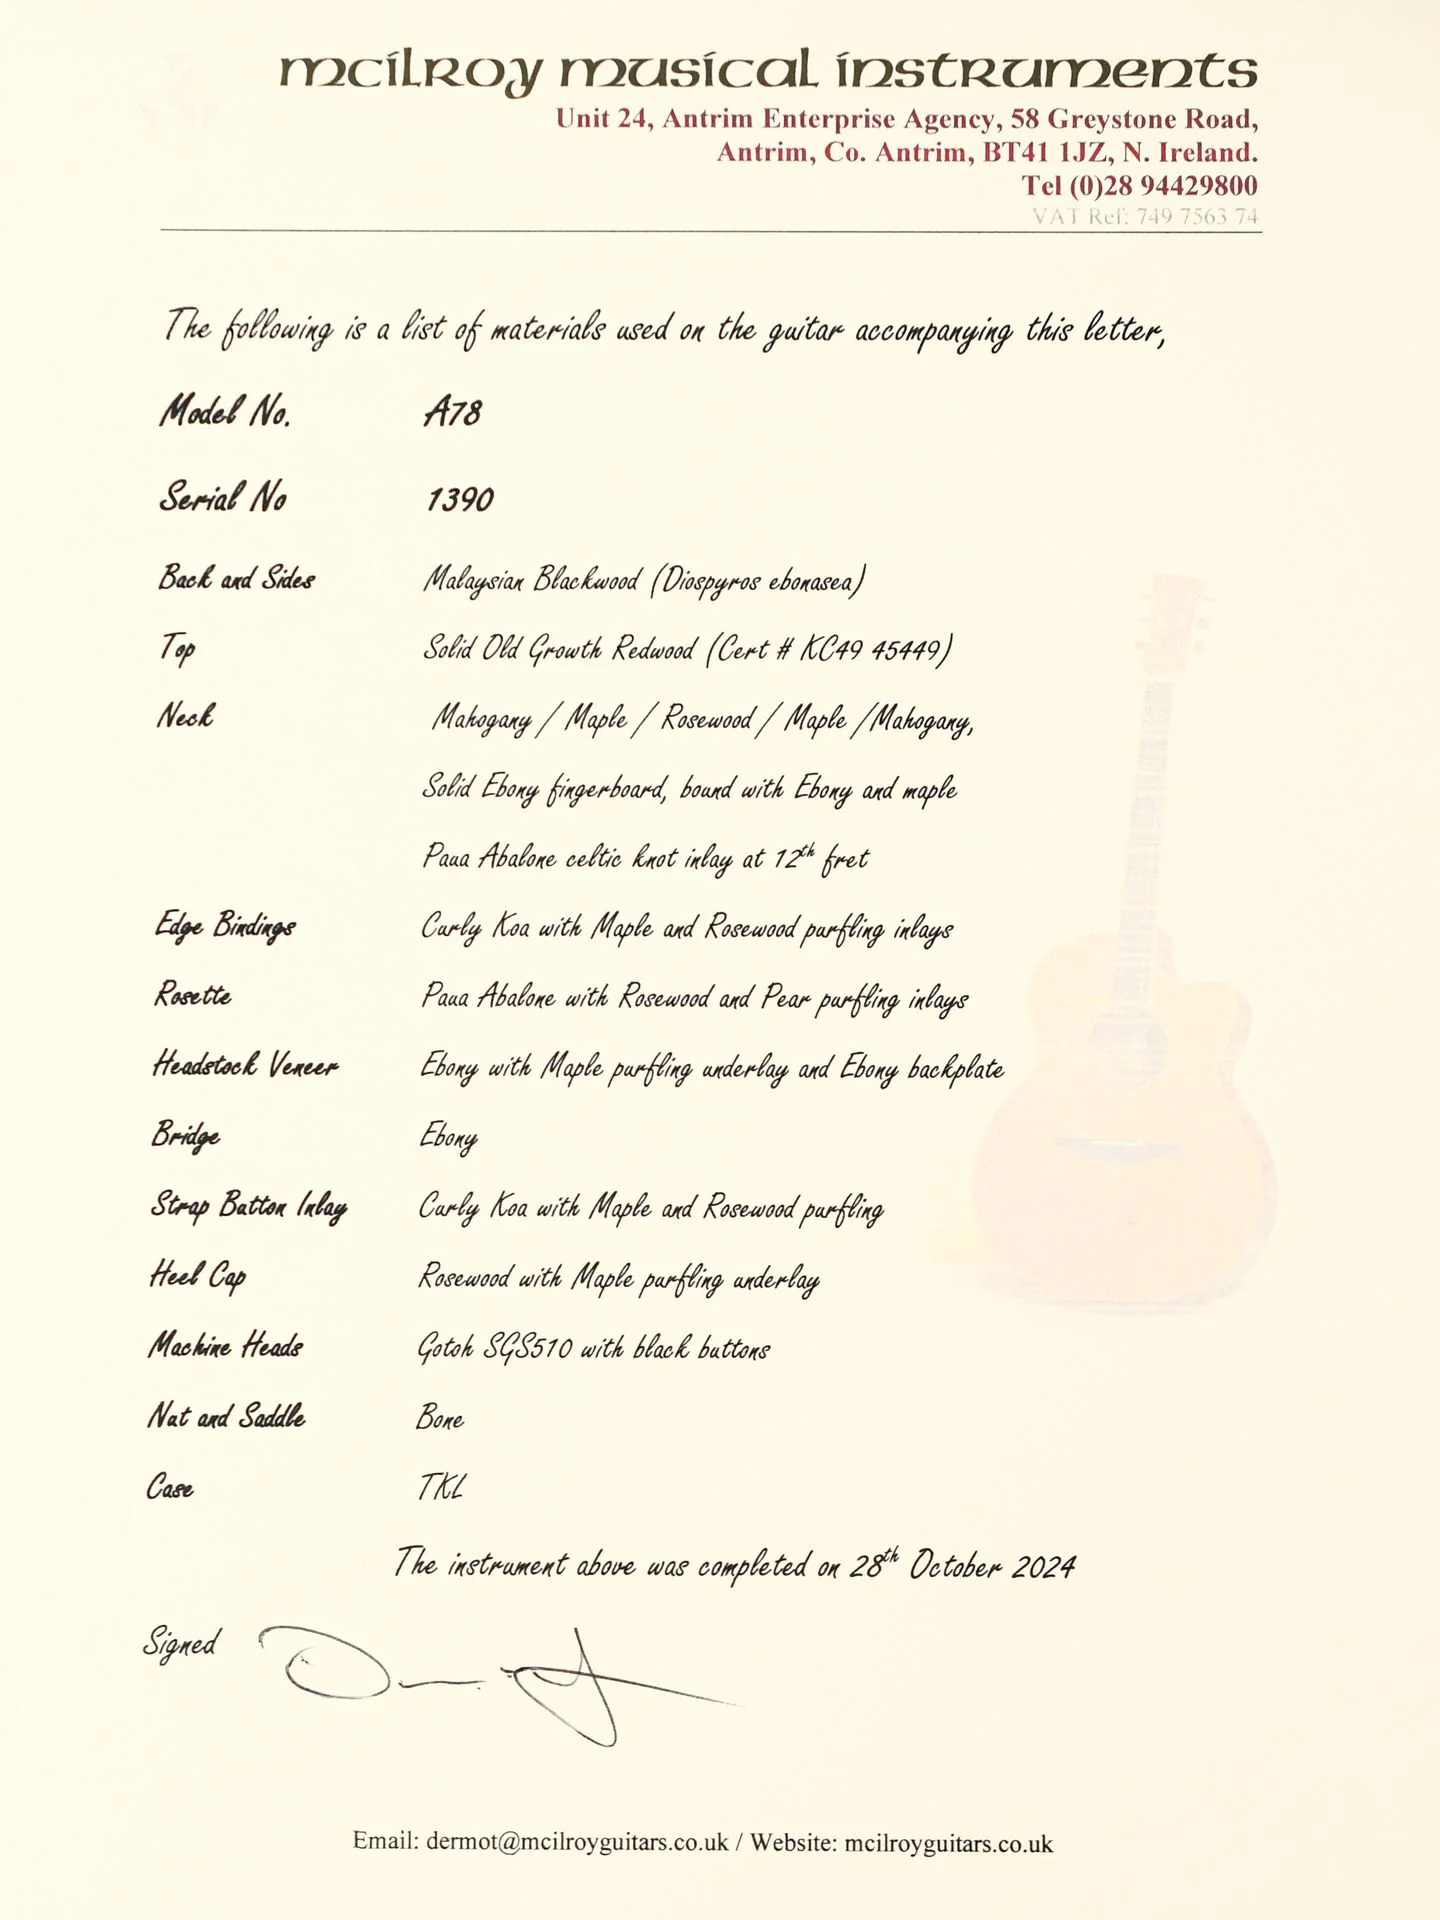 mcilroy musical instruments
Unit 24, Antrim Enterprise Agency, 58 Greystone Road,
Antrim, Co. Antrim, BT41 1JZ, N. Ireland.
Tel (0)28 94429800
VAT Ref: 749 7563 74
The following is a list of materials used on the guitar accompanying this letter,
Model No. A78
Serial No 1390
Back and Sides Malaysian Blackwood (Diospyros ebonasea)
Top Solid Old Growth Redwood (Cert # KC49 45449)
Neck Mahogany / Maple / Rosewood / Maple /Mahogany,
Solid Ebony fingerboard, bound with Ebony and maple
Paua Abalone celtic knot inlay at 12th fret
Edge Bindings Curly Koa with Maple and Rosewood purfling inlays
Rosette Paua Abalone with Rosewood and Pear purfling inlays
Headstock Veneer Ebony with Maple purfling underlay and Ebony backplate
Bridge Ebony
Strap Button Inlay Curly Koa with Maple and Rosewood purfling
Heel Cap Rosewood with Maple purfling underlay
Machine Heads Gotoh SGS510 with black buttons
Nut and Saddle Bone
Case TKL
The instrument above was completed on 28th October 2024
Signed
Email: dermot@mcilroyguitars.co.uk / Website: mcilroyguitars.co.uk